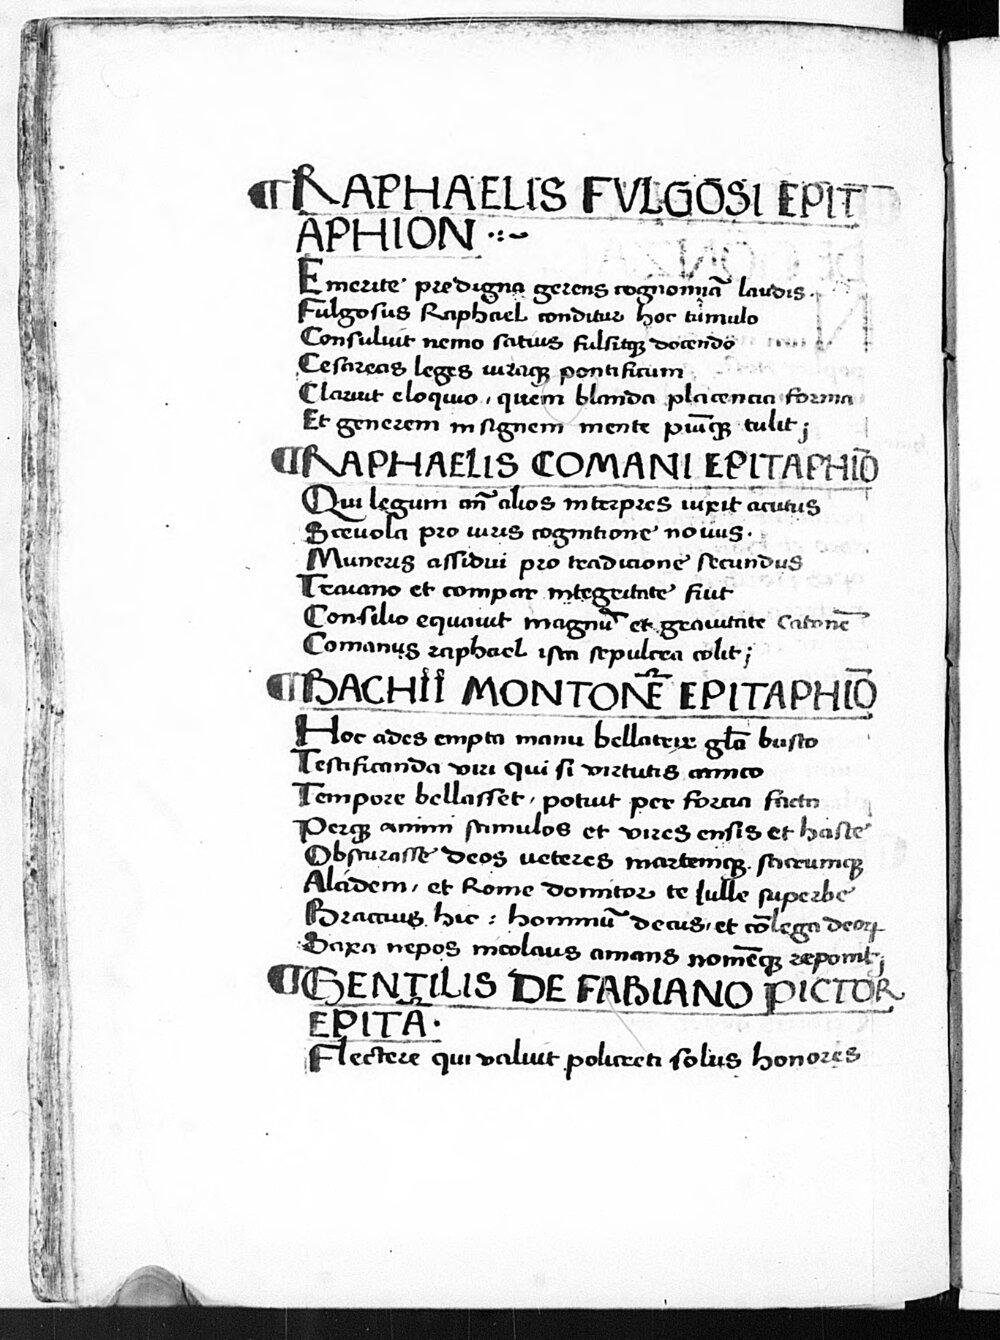 ¶ RAPHAELIS FVLGOSI EPIT
APHION ·:~
Emerite predigna gerens cognomīa laudis.
Fulgosus Raphael conditur hoc tumulo
Consuluit nemo satius fulsitqꝫ docendo
Cesareas leges utraqꝫ pontificum
Claruit eloquio, quem blanda placencia forma
Et generem insignem mente piūqꝫ tulit;
¶ RAPHAELIS COMANI EPITAPHIŌ
Qui legum añ alios interpres uixit acutus
Sceuola pro uiris cognitione nouus.
Muneris assidui pro tradicione secundus
Traiano et compar integritate fiut
Consilio equauit magnū et grauitate Catonē
Comanus raphael ista sepulcra colit;
¶ BACHII MONTONĒ EPITAPHIŌ
Hoc ades empta manu bellatrix gl̄a busto
Testificanda viri qui si virtutis amico
Tempore bellasset, potuit per forcia facta
Perqꝫ animi stimulos et vires ensis et haste
Obscurasse deos ueteres martemqꝫ. stacrumqꝫ
Alcidem, et Rome domitor te sulle superbe
Braccius hic : hominū decus, et cōlega deoꝝ
Saxa nepos nicolaus amans nomēqꝫ reponit;
¶ GENTILIS DE FABIANO PICTOR
EPITĀ·
Flectere qui valuit policreti solus honores